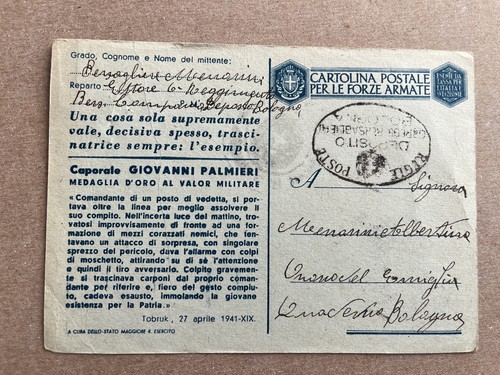 Grado, Cognome e Nome del mittente:
Bersagliere Menarini
Reparto Ettore 6º Reggimento
Bers. Compagnia Deposito Bologna
Una cosa sola supremamente
vale, decisiva spesso, trasci-
natrice sempre: l'esempio.
Caporale GIOVANNI PALMIERI
MEDAGLIA D'ORO AL VALOR MILITARE
«Comandante di un posto di vedetta, si por-
tava oltre la linea per meglio assolvere il
suo compito. Nell'incerta luce del mattino, tro-
vatosi improvvisamente di fronte ad una for-
mazione di mezzi corazzati nemici, che ten-
tavano un attacco di sorpresa, con singolare
sprezzo del pericolo, dava l'allarme con colpi
di moschetto, attirando su di sè l'attenzione
e quindi il tiro avversario. Colpito gravemen-
te si trascinava carponi dal proprio comandan-
te per riferire e, fiero del gesto compiu-
to, cadeva esausto, immolando la giovane
esistenza per la Patria.»
Tobruk, 27 aprile 1941-XIX.
A CURA DELLO STATO MAGGIORE R. ESERCITO
CARTOLINA POSTALE
PER LE FORZE ARMATE
REGIE POSTE
DEPOSITO
BOLOGNA
A Signora
Menarini Albertina
Bologna